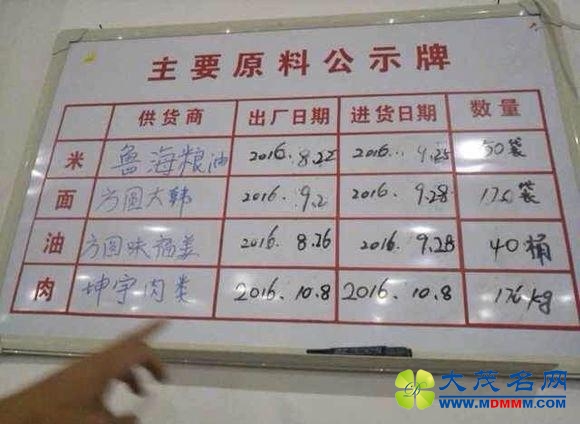 主要原料公示牌
供货商 出厂日期 进货日期 数量
米 鲁海粮油 2016.8.22 2016.9.25 50袋
面 方圆大韩 2016.9.2 2016.9.28 袋
油 方圆味福美 2016.8.26 2016.9.28 40桶
肉 坤宇肉类 2016.10.8 2016.10.8 176kg
大茂名网
WWW.MDMMM.COM